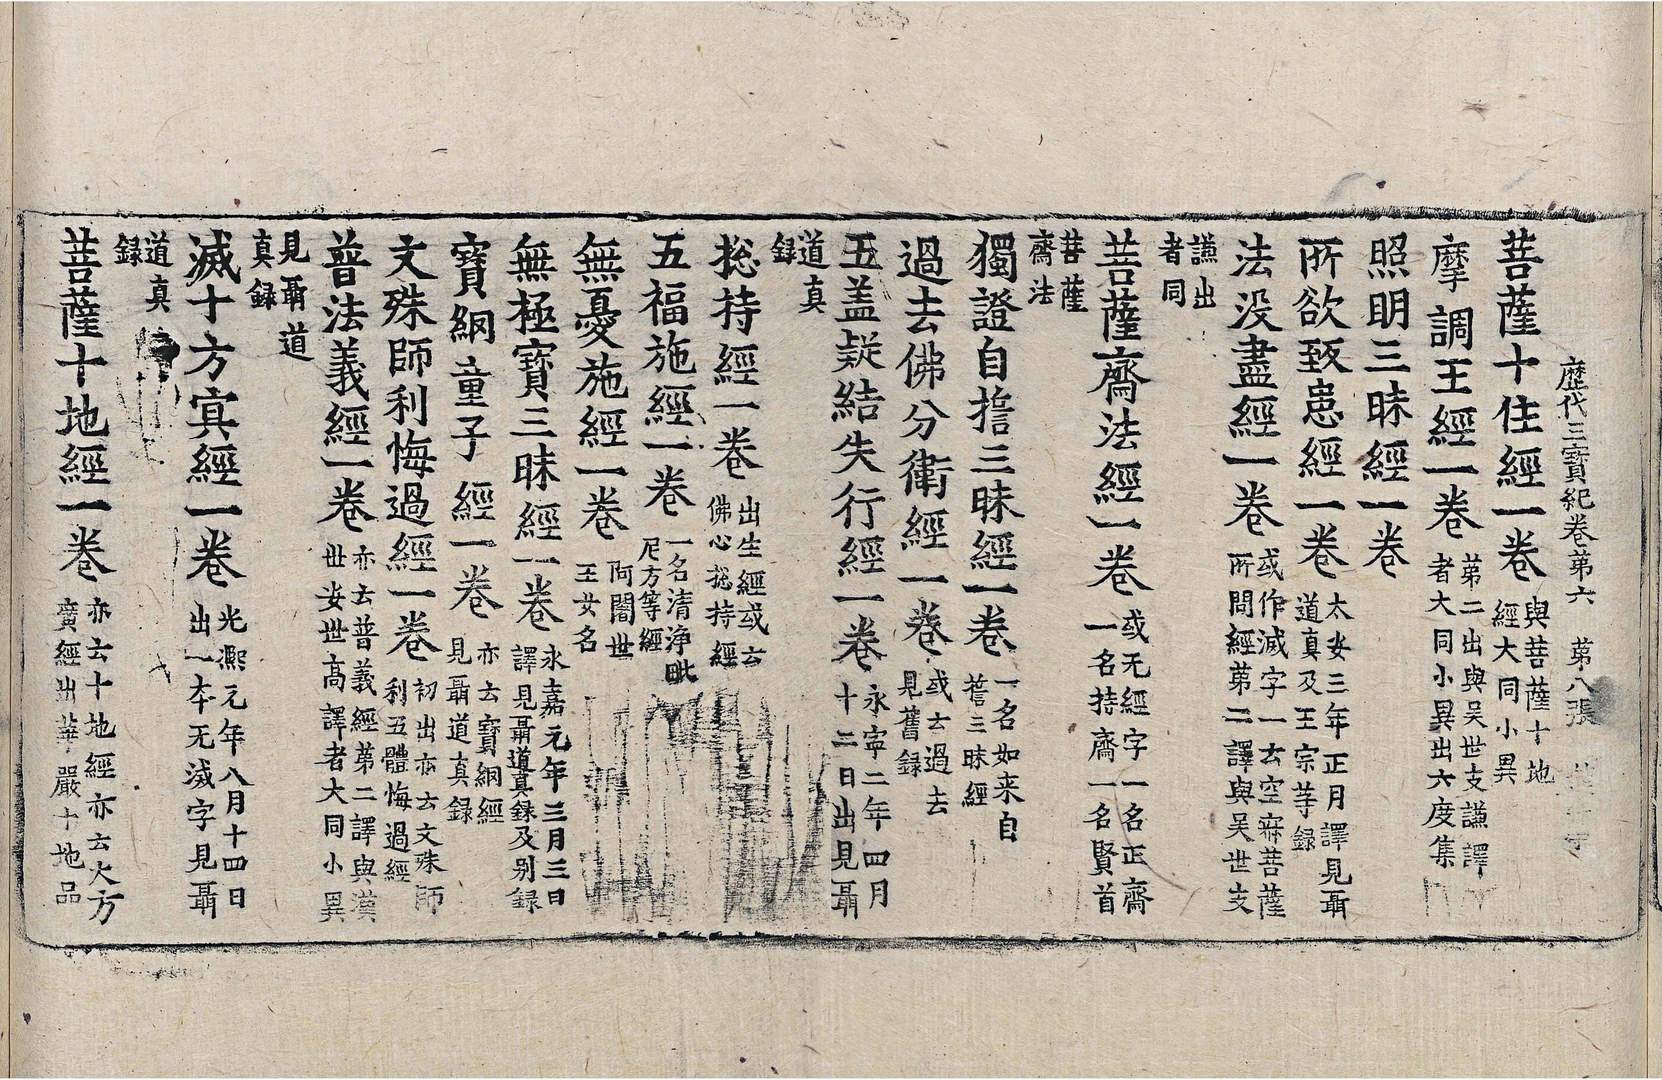 歷代三寶紀卷第六 第八張
菩薩十住經一卷 與菩薩十地經大同小異
摩調王經一卷 第二出與吳世支謙譯者大同小異出六度集
照明三昧經一卷
所欲致患經一卷 太安三年正月譯見聶道真及王宗等錄
法没盡經一卷 或作滅字一云空寂菩薩所問經第二譯與吳世支
謙出者同
菩薩齋法經一卷 或无經字一名正齋一名持齋一名賢首
菩薩齋法
獨證自擔三昧經一卷 一名如来自誓三昧經
過去佛分衛經一卷 或云過去見舊録
五盖疑結失行經一卷 永寧二年四月十二日出見聶
道真録
捴持經一卷 出生經或云佛心捴持經
五福施經一卷 一名清淨毗尼方等經
無憂施經一卷 阿闍世王女名
無極寶三昧經一卷 永嘉元年三月三日譯見聶道真録及别録
寶網童子經一卷 亦云寶網經見聶道真録
文殊師利悔過經一卷 初出亦云文殊師利五體悔過經
普法義經一卷 亦云普義經第二譯與漢世安世高譯者大同小異
見聶道真録
滅十方㝠經一卷 光熈元年八月十四日出一本无滅字見聶
道真録
菩薩十地經一卷 亦云十地經亦云大方廣經出華嚴十地品